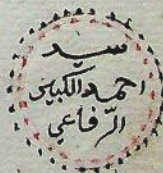 سيد
احمد الكبير
الرّفاعي